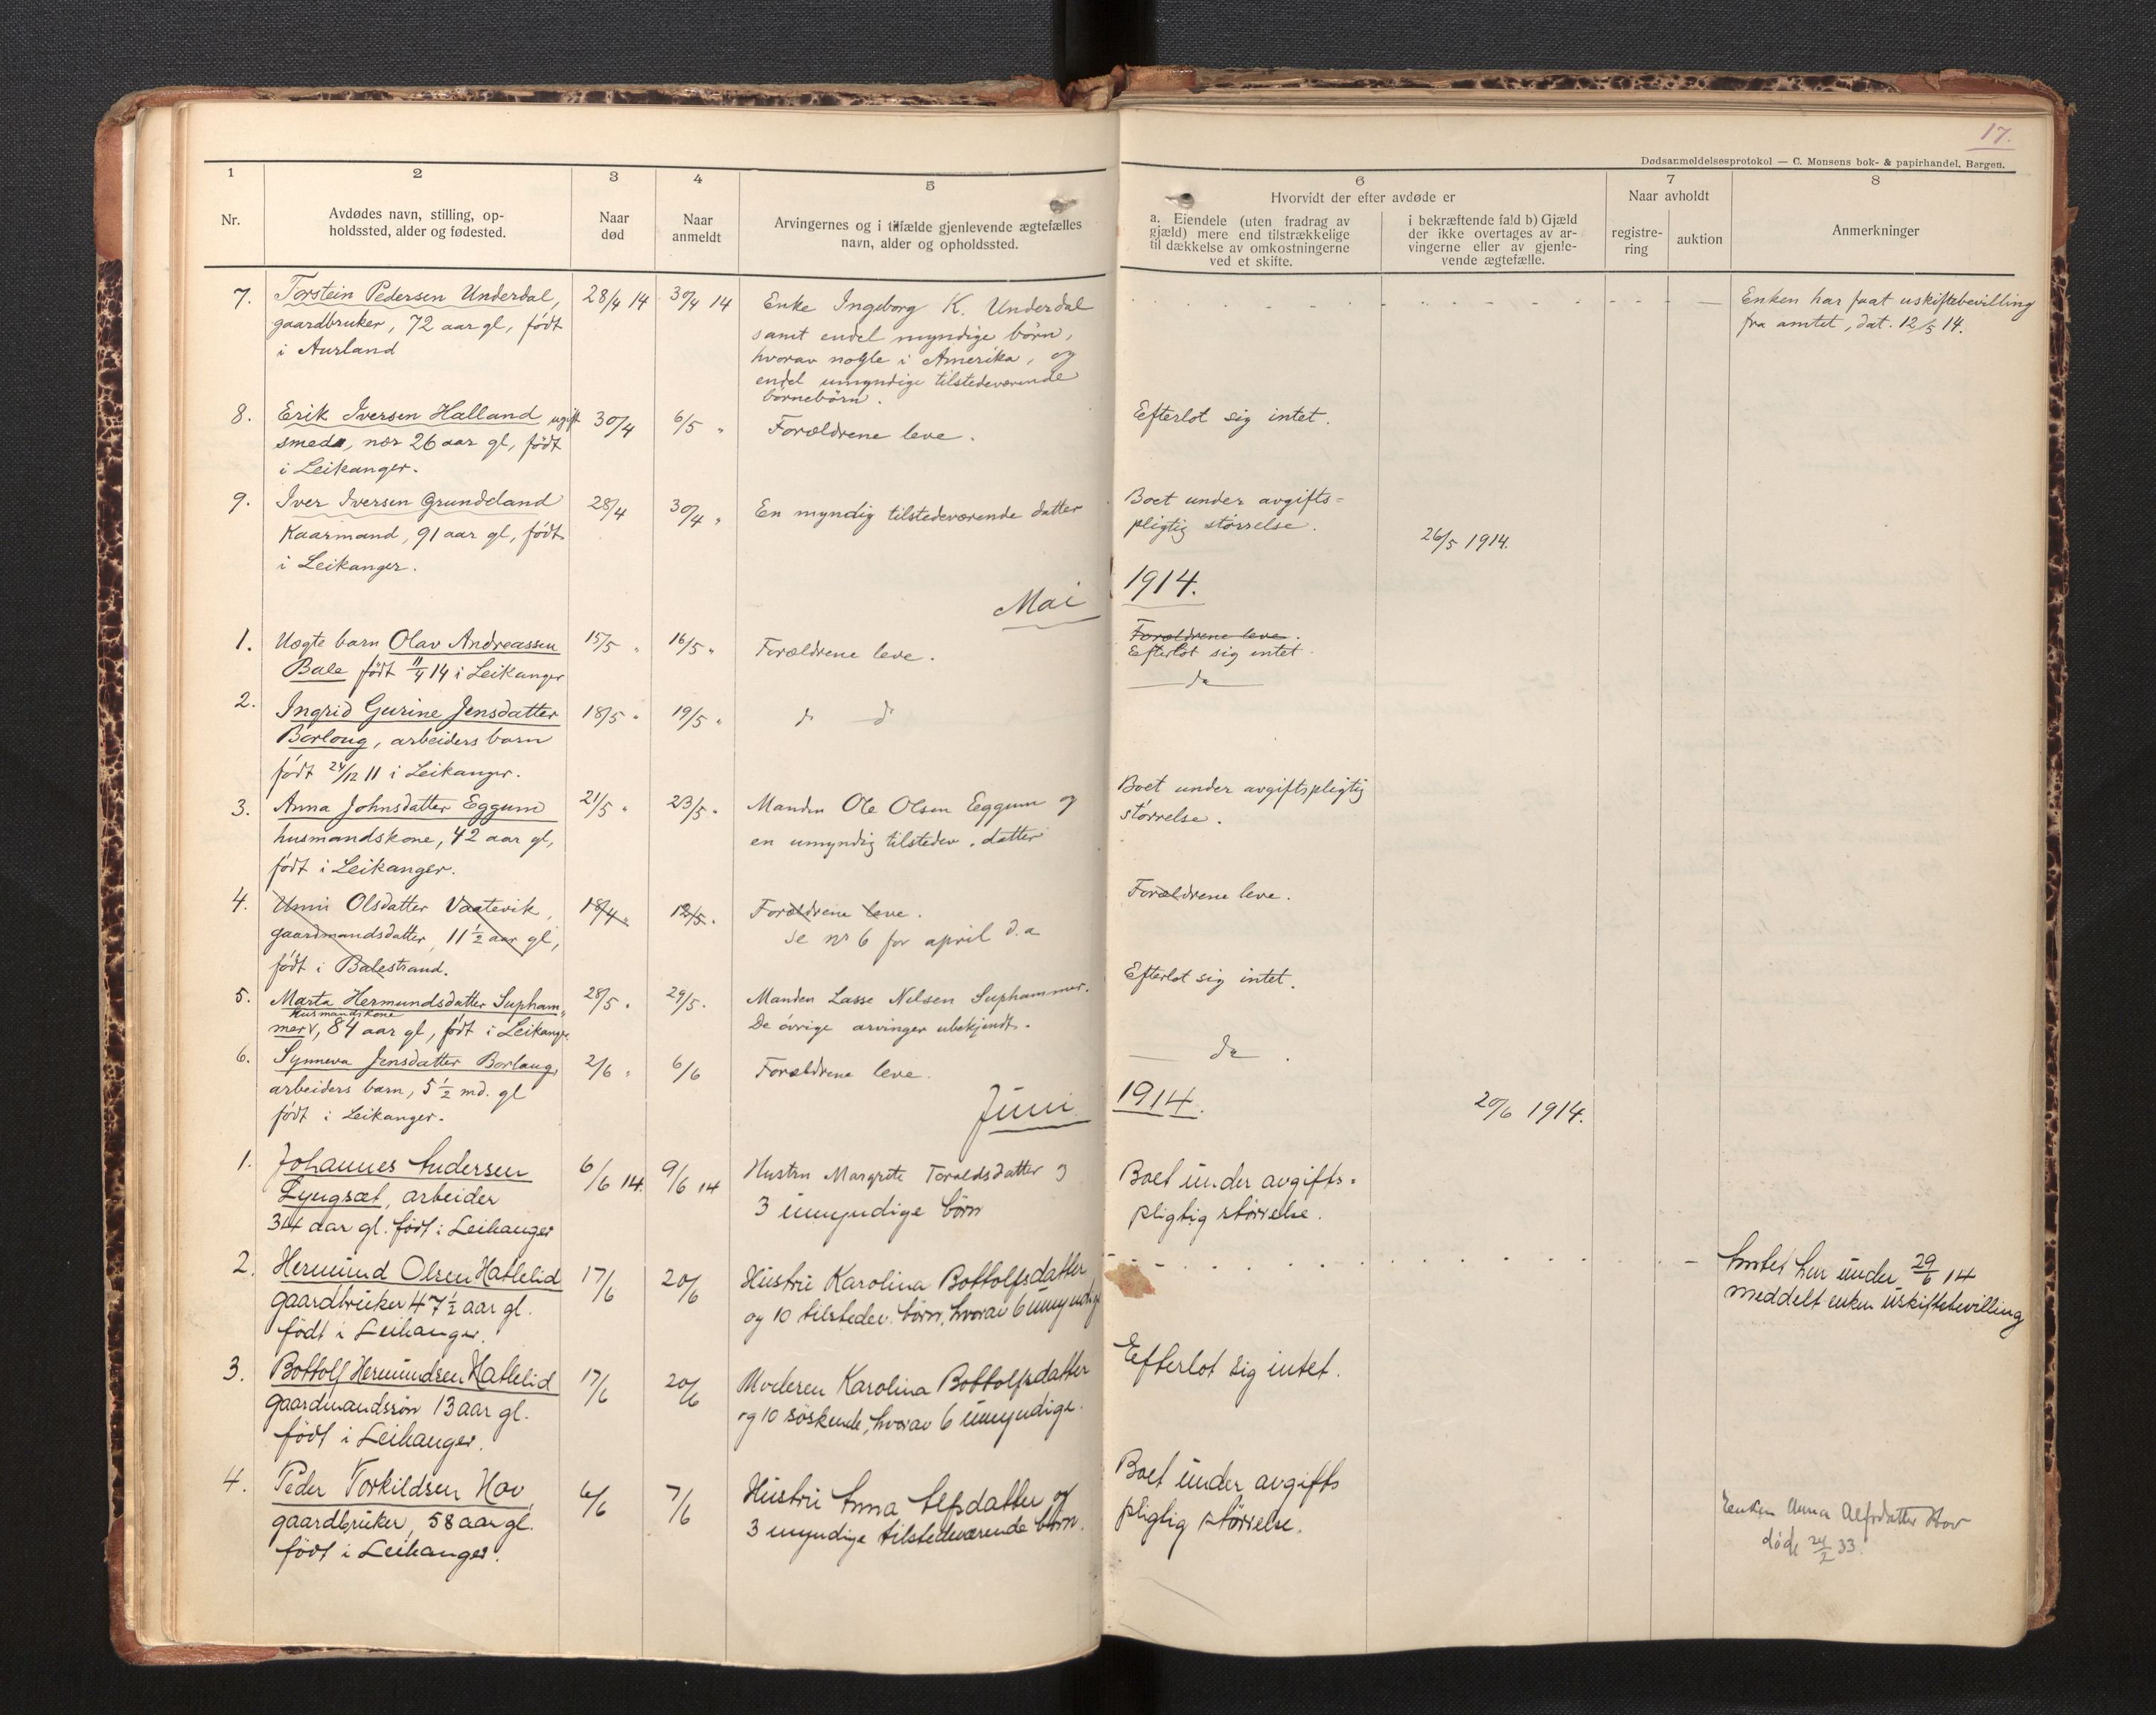 17.
Dødsanmeldelsesprotokol — C. Monsens bok- & papirhandel, Bergen.
1
2
3
4
5
6
7
8
Nr.
Avdødes navn, stilling, op-
holdssted, alder og fødested.
Naar
død
Naar
anmeldt
Arvingernes og i tilfælde gjenlevende ægtefælles
navn, alder og opholdssted.
Hvorvidt der efter avdøde er
a. Eiendele (uten fradrag av
gjæld) mere end tilstrækkelige
til dækkelse av omkostningerne
ved et skifte.
i bekræftende fald b) Gjæld
der ikke overtages av ar-
vingerne eller av gjenle-
vende ægtefælle.
Naar avholdt
registre-
ring
auktion
Anmerkninger
7.
Torstein Pedersen Underdal,
gaardbruker, 72 aar gl, født
i Aurland
28/4 14
30/4 14
Enke Ingeborg K. Underdal
samt endel myndige børn,
hvorav nogle i Amerika, og
endel umyndige tilstedeværende
børnebørn.
Enken har faat uskiftebevilling
fra amtet, dat. 12/5 14.
8.
Erik Iversen Halland ugift
smed, nær 26 aar gl, født
i Leikanger.
30/4
6/5 "
Forældrene leve.
Efterlot sig intet.
9.
Iver Iversen Grundeland
Kaarmand, 91 aar gl, født
i Leikanger.
28/4
30/4 "
En myndig tilstedeværende datter
Boet under avgifts=
pligtig størrelse.
26/5 1914.
Mai 1914.
1.
Uegte barn Olav Andreassen
Bale født 11/4 14 i Leikanger
15/5 "
16/5 "
Forældrene leve.
Forældrene leve.
Efterlot sig intet.
2.
Ingrid Gurine Jensdatter
Borlaug, arbeiders barn
født 24/12 11 i Leikanger.
18/5 "
19/5 "
do do
do
3.
Anna Johnsdatter Eggum
husmandskone, 42 aar gl,
født i Leikanger.
21/5 "
23/5 "
Manden Ole Olsen Eggum og
en umyndig tilstedev. datter
Boet under avgiftspligtig
størrelse.
4.
Unni Olsdatter Vaatevik,
gaardmandsdatter, 11 1/2 aar gl,
født i Balestrand.
18/4 "
12/5 "
Forældrene leve.
se nr 6 for april d.a
Forældrene leve.
5.
Marta Hermundsdatter Supham-
husmandskone
mer, 84 aar gl, født i Leikanger.
28/5 "
29/5 "
Manden Lasse Nelsen Suphammer.
De øvrige arvinger ubekjendt.
Efterlot sig intet.
6.
Synneva Jensdatter Borlaug,
arbeiders barn, 5 1/2 md. gl
født i Leikanger.
2/6 "
6/6
Forældrene leve.
do
20/6 1914.
Juni 1914.
1.
Johannes Andersen
Lyngsæt, arbeider
34 aar gl. født i Leikanger
6/6 14.
9/6 14
Hustru Margrete Toraldsdatter og
3 umyndige børn
Boet under avgifts=
pligtig størrelse.
2.
Hermund Olsen Hatlelid
gaardbruker 47 1/2 aar gl.
født i Leikanger.
17/6
20/6
Hustru Karolina Bottolfsdatter
og 10 tilstedev. børn, hvorav 6 umyndige
Amtet har under 29/6 14
meddelt enken uskiftebevilling
3.
Bottolf Hermundsen Hatlelid
gaardmandssøn 13 aar gl.
født i Leikanger.
17/6
20/6
Moderen Karolina Bottolfsdatter
og 10 søskende, hvorav 6 umyndige.
Efterlot sig intet.
4.
Peder Torkildsen Hov,
gaardbruker, 58 aar gl.
født i Leikanger.
6/6
7/6
Hustru Anna Alfsdatter og
3 myndige tilstedeværende børn.
Boet under avgifts
pligtig størrelse.
Enken Anna Alfsdatter Hov
døde 24/2 33.